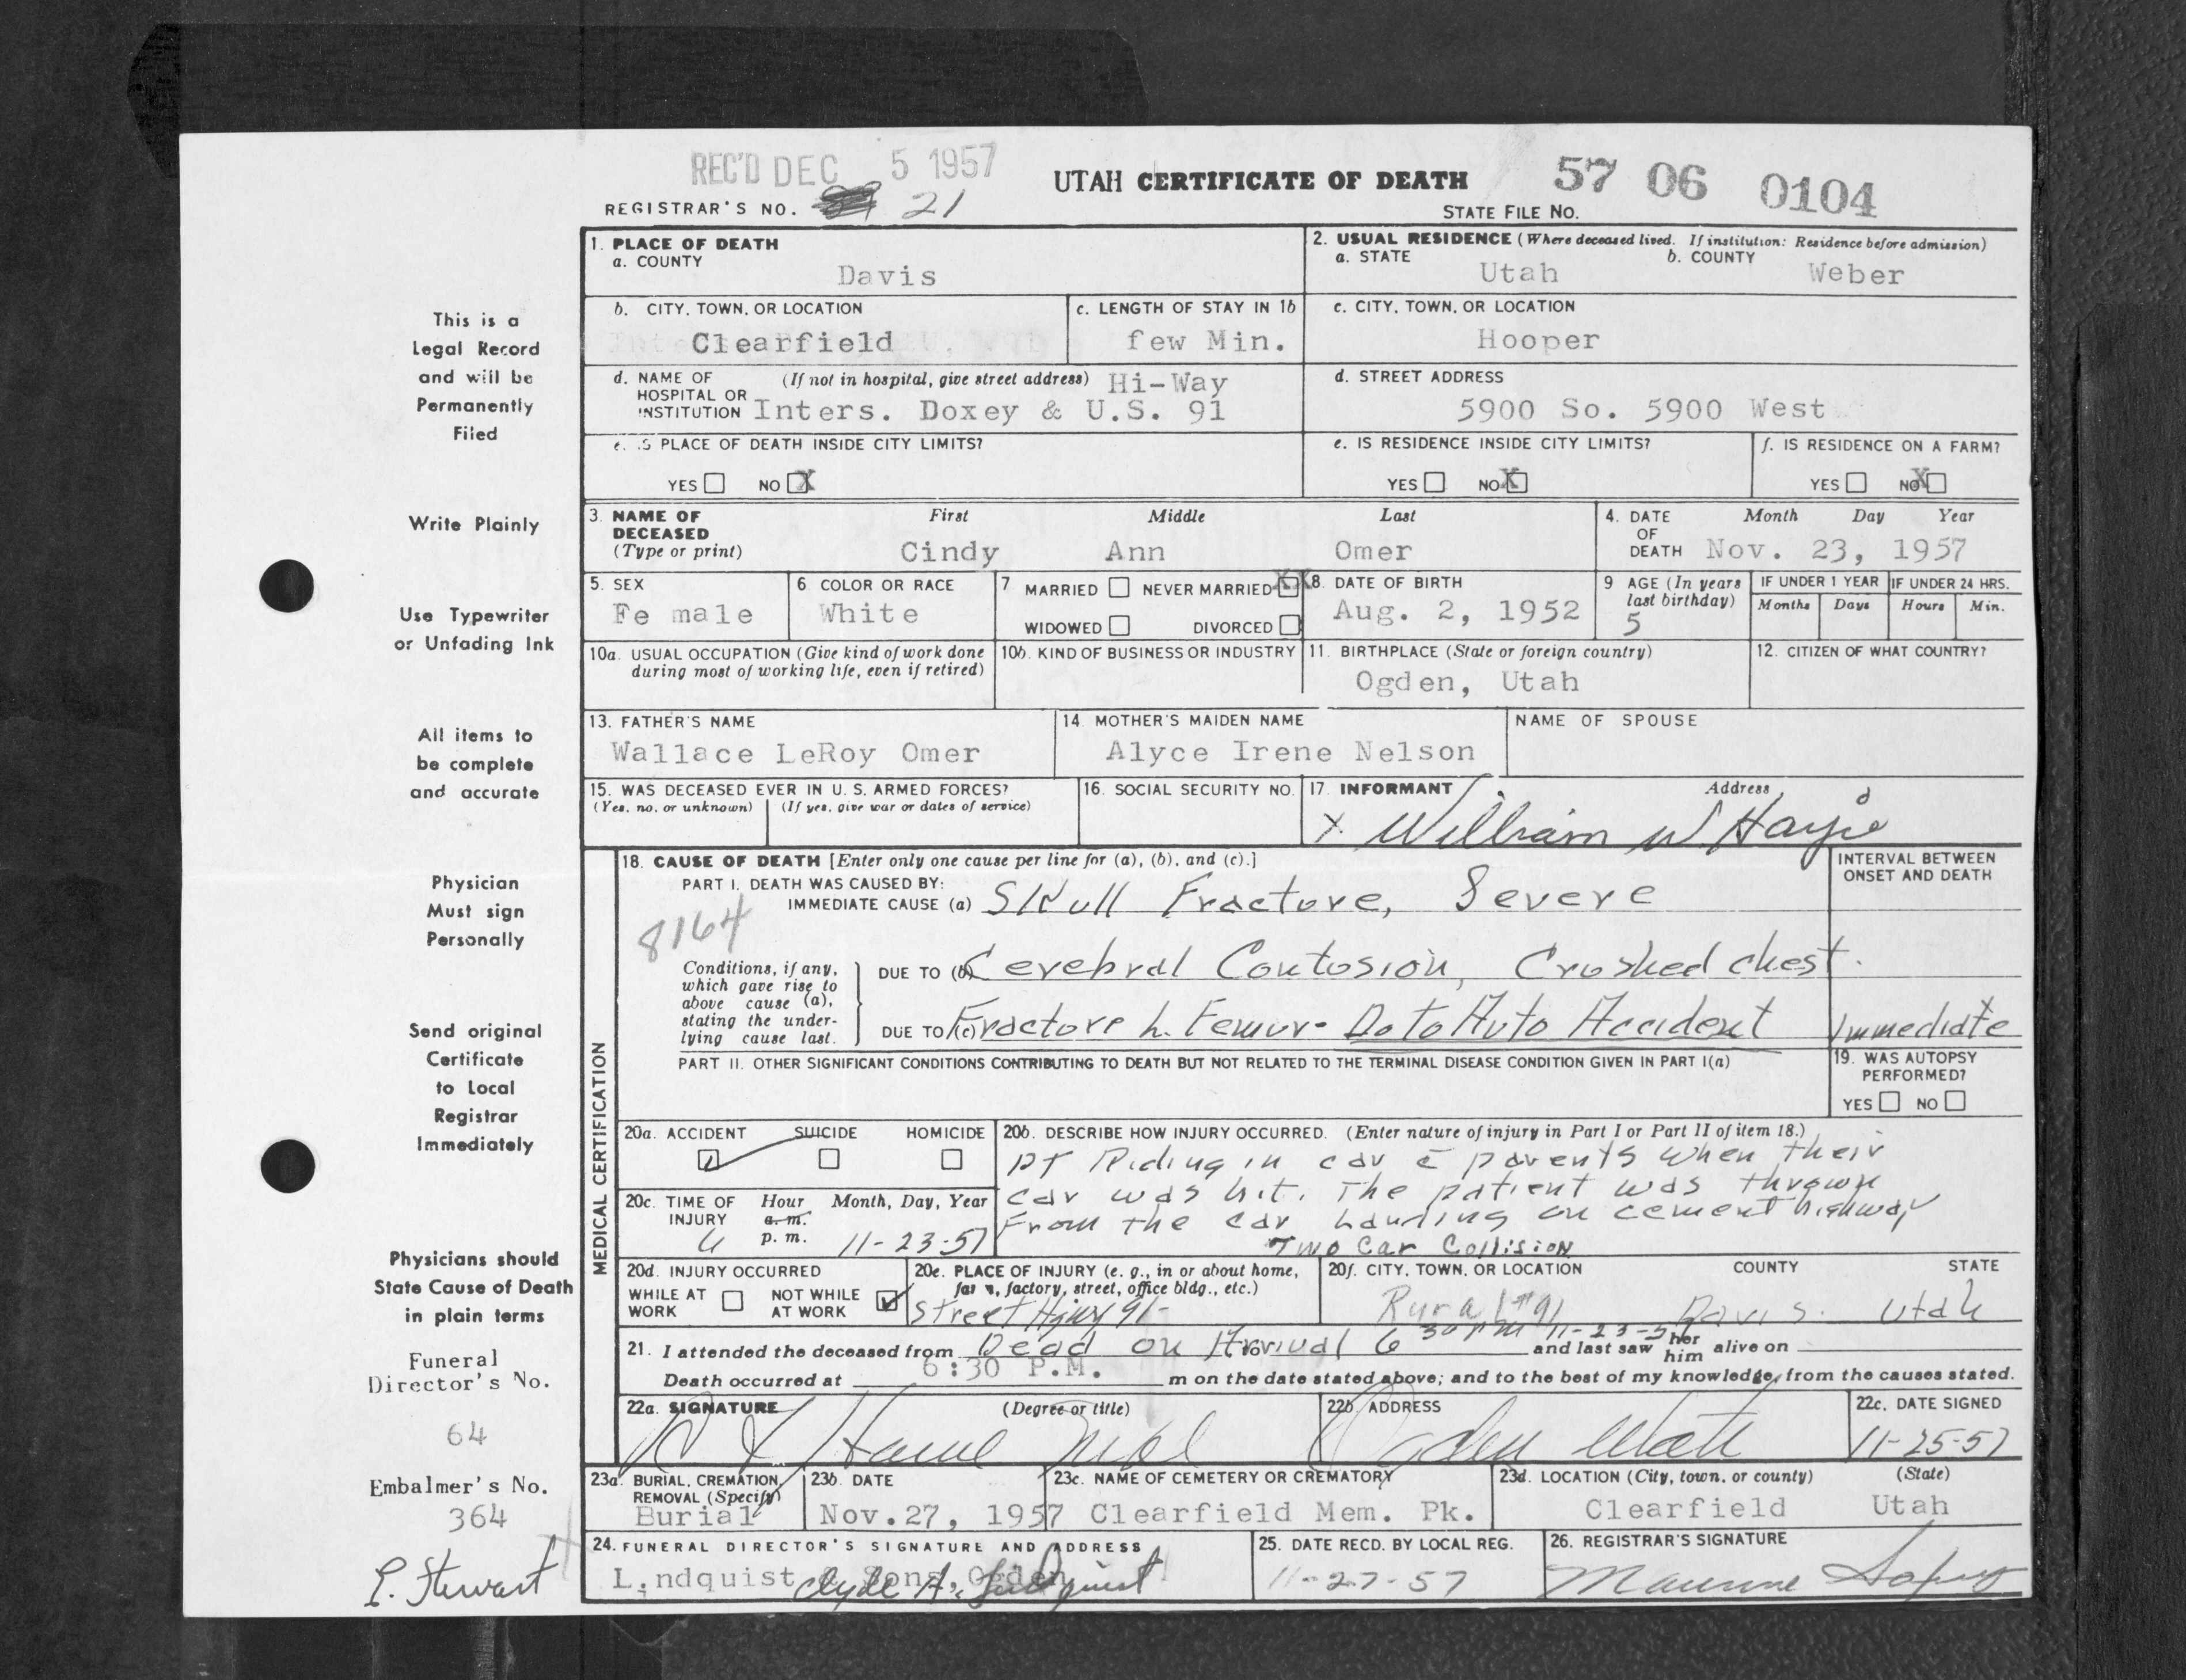 REC'D DEC 5 1957
UTAH CERTIFICATE OF DEATH
57 06 0104
REGISTRAR'S NO. 21
STATE FILE NO.
1. PLACE OF DEATH
a. COUNTY
Davis
2. USUAL RESIDENCE (Where deceased lived. If institution: Residence before admission)
a. STATE b. COUNTY
Utah Weber
b. CITY, TOWN, OR LOCATION
Clearfield
c. LENGTH OF STAY IN 1b
few Min.
c. CITY, TOWN, OR LOCATION
Hooper
d. NAME OF HOSPITAL OR INSTITUTION (If not in hospital, give street address) Hi-Way
Inters. Doxey & U.S. 91
d. STREET ADDRESS
5900 So. 5900 West
e. IS PLACE OF DEATH INSIDE CITY LIMITS?
YES NO X
e. IS RESIDENCE INSIDE CITY LIMITS?
YES NO X
f. IS RESIDENCE ON A FARM?
YES NO X
3. NAME OF DECEASED (Type or print)
First Middle Last
Cindy Ann Omer
4. DATE OF DEATH
Month Day Year
Nov. 23, 1957
5. SEX
Fe male
6 COLOR OR RACE
White
7 MARRIED NEVER MARRIED XX
WIDOWED DIVORCED
8. DATE OF BIRTH
Aug. 2, 1952
9 AGE (In years last birthday)
5
IF UNDER 1 YEAR
Months Days
IF UNDER 24 HRS.
Hours Min.
10a. USUAL OCCUPATION (Give kind of work done during most of working life, even if retired)
10b. KIND OF BUSINESS OR INDUSTRY
11. BIRTHPLACE (State or foreign country)
Ogden, Utah
12. CITIZEN OF WHAT COUNTRY?
13. FATHER'S NAME
Wallace LeRoy Omer
14. MOTHER'S MAIDEN NAME
Alyce Irene Nelson
NAME OF SPOUSE
15. WAS DECEASED EVER IN U. S. ARMED FORCES?
(Yes, no, or unknown) (If yes, give war or dates of service)
16. SOCIAL SECURITY NO.
17. INFORMANT Address
X William W
MEDICAL CERTIFICATION
18. CAUSE OF DEATH [Enter only one cause per line for (a), (b), and (c).]
PART I. DEATH WAS CAUSED BY:
IMMEDIATE CAUSE (a) Skull Fracture, Severe
8164
INTERVAL BETWEEN ONSET AND DEATH
Conditions, if any, which gave rise to above cause (a), stating the underlying cause last.
DUE TO (b) Cerebral Contusion, Crushed chest.
DUE TO (c) Fracture L. Femur - Do to Auto Accident
Immediate
PART II. OTHER SIGNIFICANT CONDITIONS CONTRIBUTING TO DEATH BUT NOT RELATED TO THE TERMINAL DISEASE CONDITION GIVEN IN PART I(a)
19. WAS AUTOPSY PERFORMED?
YES NO
20a. ACCIDENT SUICIDE HOMICIDE
20b. DESCRIBE HOW INJURY OCCURRED. (Enter nature of injury in Part I or Part II of item 18.)
PT Riding in car c̄ parents when their
car was hit. The patient was thrown
From the car Landing on cement highway
Two Car Collision
20c. TIME OF INJURY
Hour Month, Day, Year
a. m.
p. m. 11-23-57
20d. INJURY OCCURRED
WHILE AT WORK NOT WHILE AT WORK
20e. PLACE OF INJURY (e. g., in or about home, farm, factory, street, office bldg., etc.)
Street Hiwy 91-
20f. CITY, TOWN, OR LOCATION COUNTY STATE
Rural #91 Davis. Utah
21. I attended the deceased from Dead on Arrival 6 30 PM 11-23-57 and last saw her him alive on
Death occurred at 6:30 P.M. m on the date stated above; and to the best of my knowledge, from the causes stated.
22a. SIGNATURE (Degree or title)
22b. ADDRESS
Ogden Utah
22c. DATE SIGNED
11-25-57
23a. BURIAL, CREMATION REMOVAL (Specify)
Burial
23b. DATE
Nov.27, 1957
23c. NAME OF CEMETERY OR CREMATORY
Clearfield Mem. Pk.
23d. LOCATION (City, town, or county) (State)
Clearfield Utah
24. FUNERAL DIRECTOR'S SIGNATURE AND ADDRESS
Lindquist & Sons, Ogden
Clyde A. Lindquist
25. DATE RECD. BY LOCAL REG.
11-27-57
26. REGISTRAR'S SIGNATURE
Maurine
This is a
Legal Record
and will be
Permanently
Filed
Write Plainly
Use Typewriter
or Unfading Ink
All items to
be complete
and accurate
Physician
Must sign
Personally
Send original
Certificate
to Local
Registrar
Immediately
Physicians should
State Cause of Death
in plain terms
Funeral
Director's No.
64
Embalmer's No.
364
Stewart